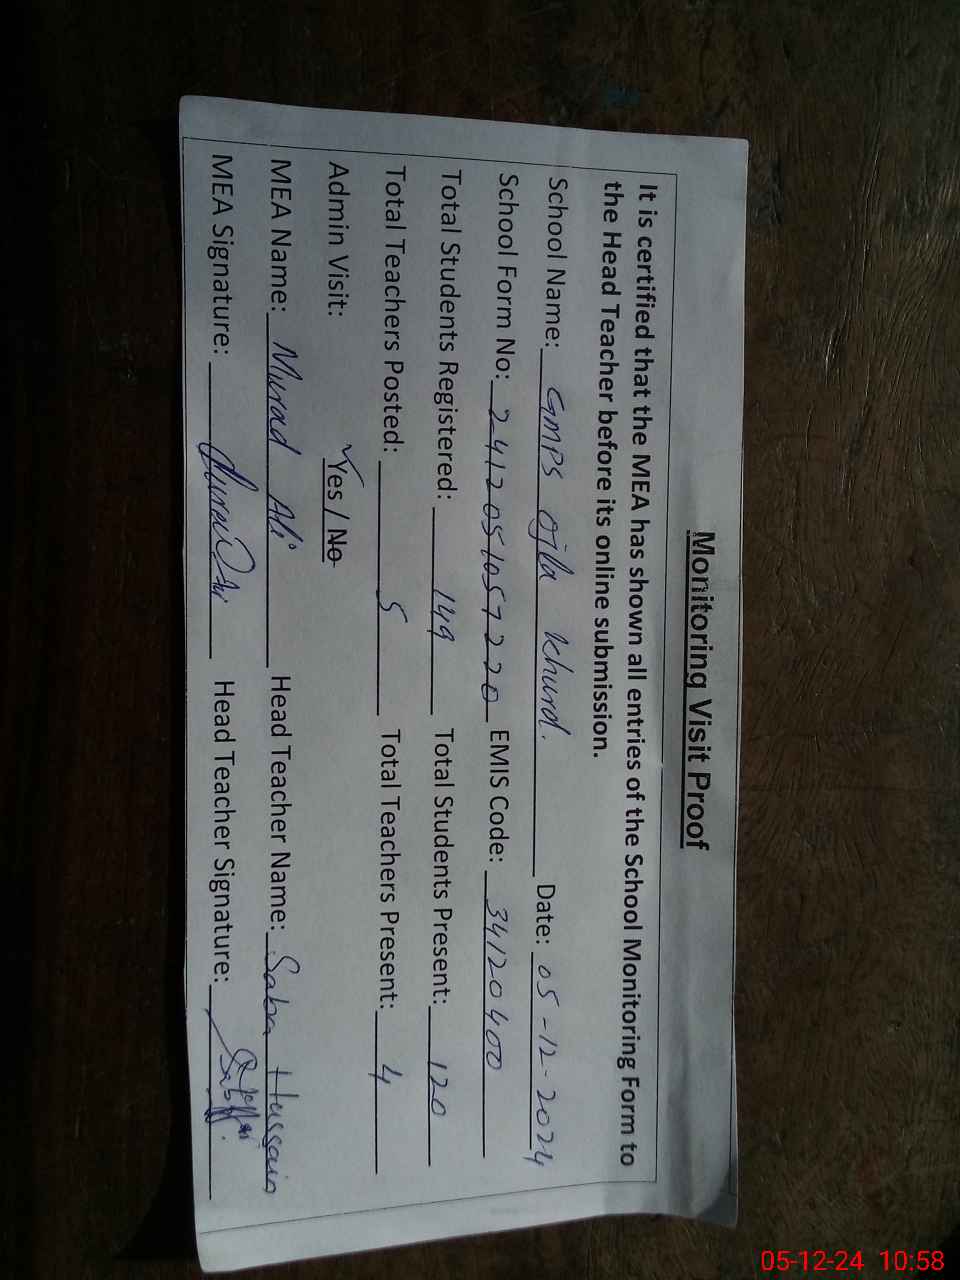 Monitoring Visit Proof
It is certified that the MEA has shown all entries of the School Monitoring Form to
the Head Teacher before its online submission.
School Name: GMPS Ojla Khurd. Date: 05-12-2024
School Form No: 2412051057220 EMIS Code: 34120400
Total Students Registered: 149 Total Students Present: 120
Total Teachers Posted: 5 Total Teachers Present: 4
Admin Visit: Yes / No
MEA Name: Murad Ali Head Teacher Name: Saba Hussain
MEA Signature: Head Teacher Signature:
05-12-24 10:58